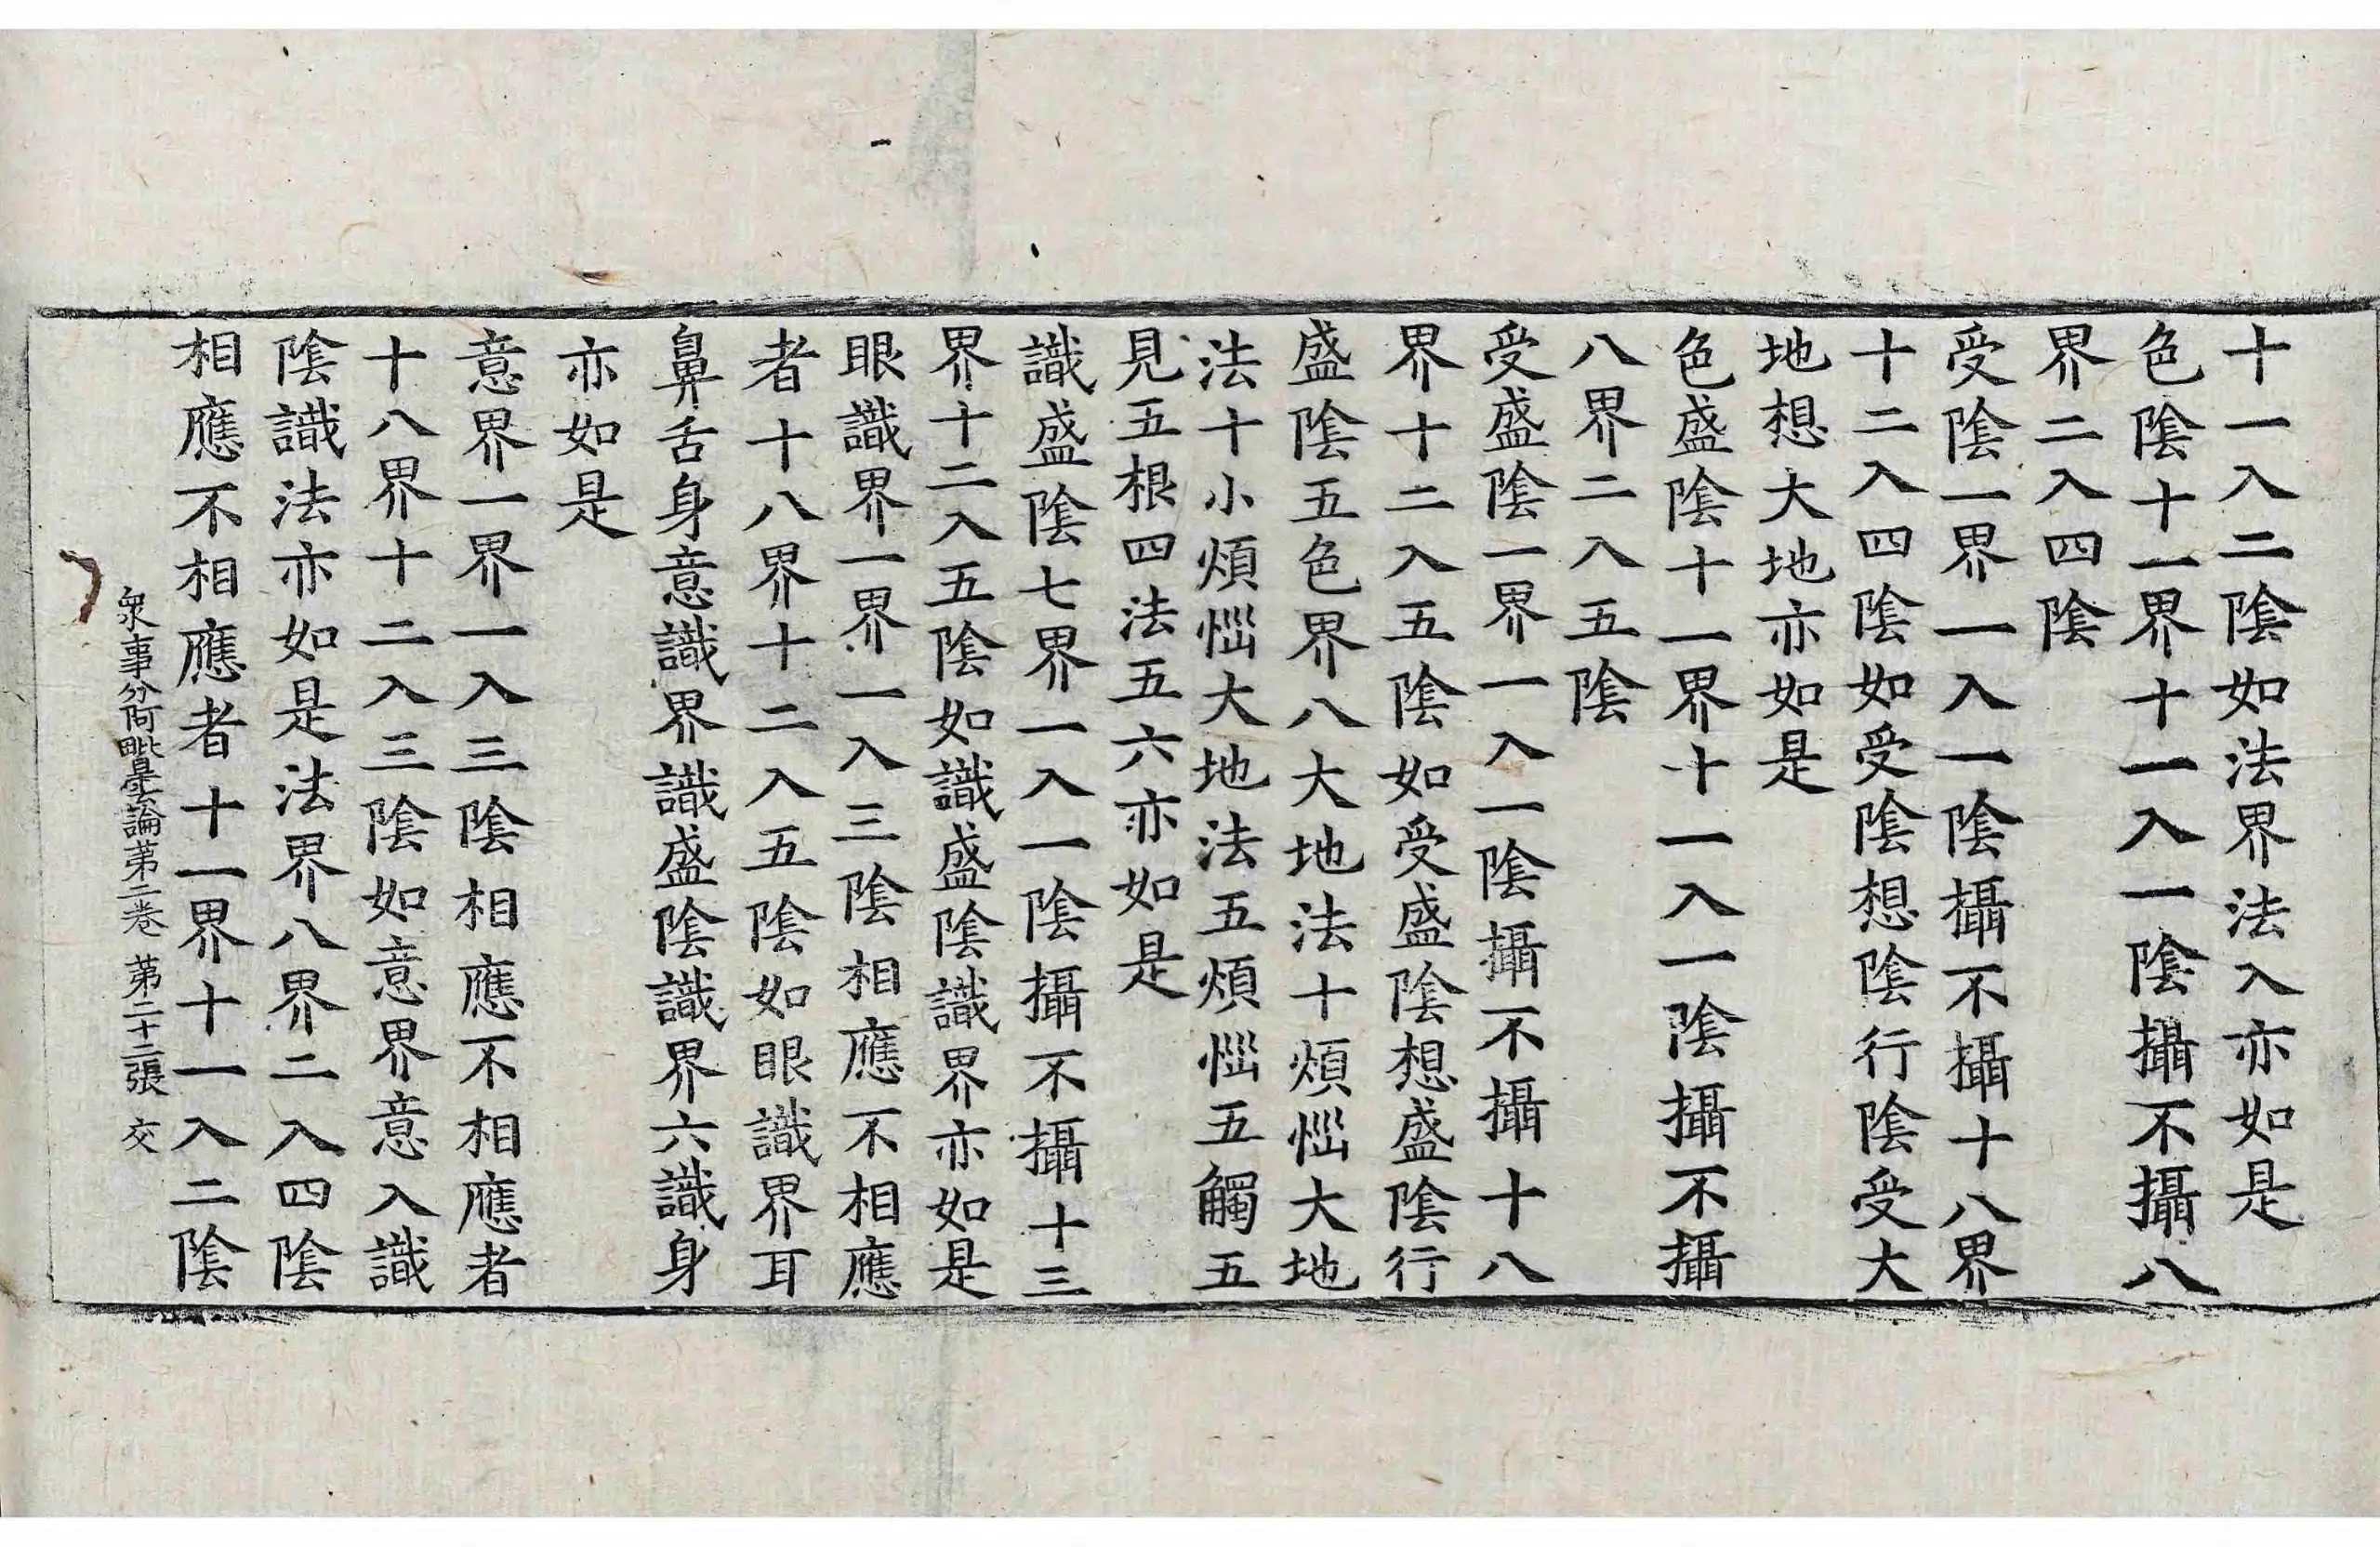 十一入二陰如法界法入亦如是
色陰十一界十一入一陰攝不攝八
界二入四陰
受陰一界一入一陰攝不攝十八界
十二入四陰如受陰想陰行陰受大
地想大地亦如是
色盛陰十一界十一入一陰攝不攝
八界二入五陰
受盛陰一界一入一陰攝不攝十八
界十二入五陰如受盛陰想盛陰行
盛陰五色界八大地法十煩惱大地
法十小煩惱大地法五煩惱五觸五
見五根四法五六亦如是
識盛陰七界一入一陰攝不攝十三
界十二入五陰如識盛陰識界亦如是
眼識界一界一入三陰相應不相應
者十八界十二入五陰如眼識界耳
鼻舌身意識界識盛陰識界六識身
亦如是
意界一界一入三陰相應不相應者
十八界十二入三陰如意界意入識
陰識法亦如是法界八界二入四陰
相應不相應者十一界十一入二陰
衆事分阿毗曇論第二卷 第二十二張 交